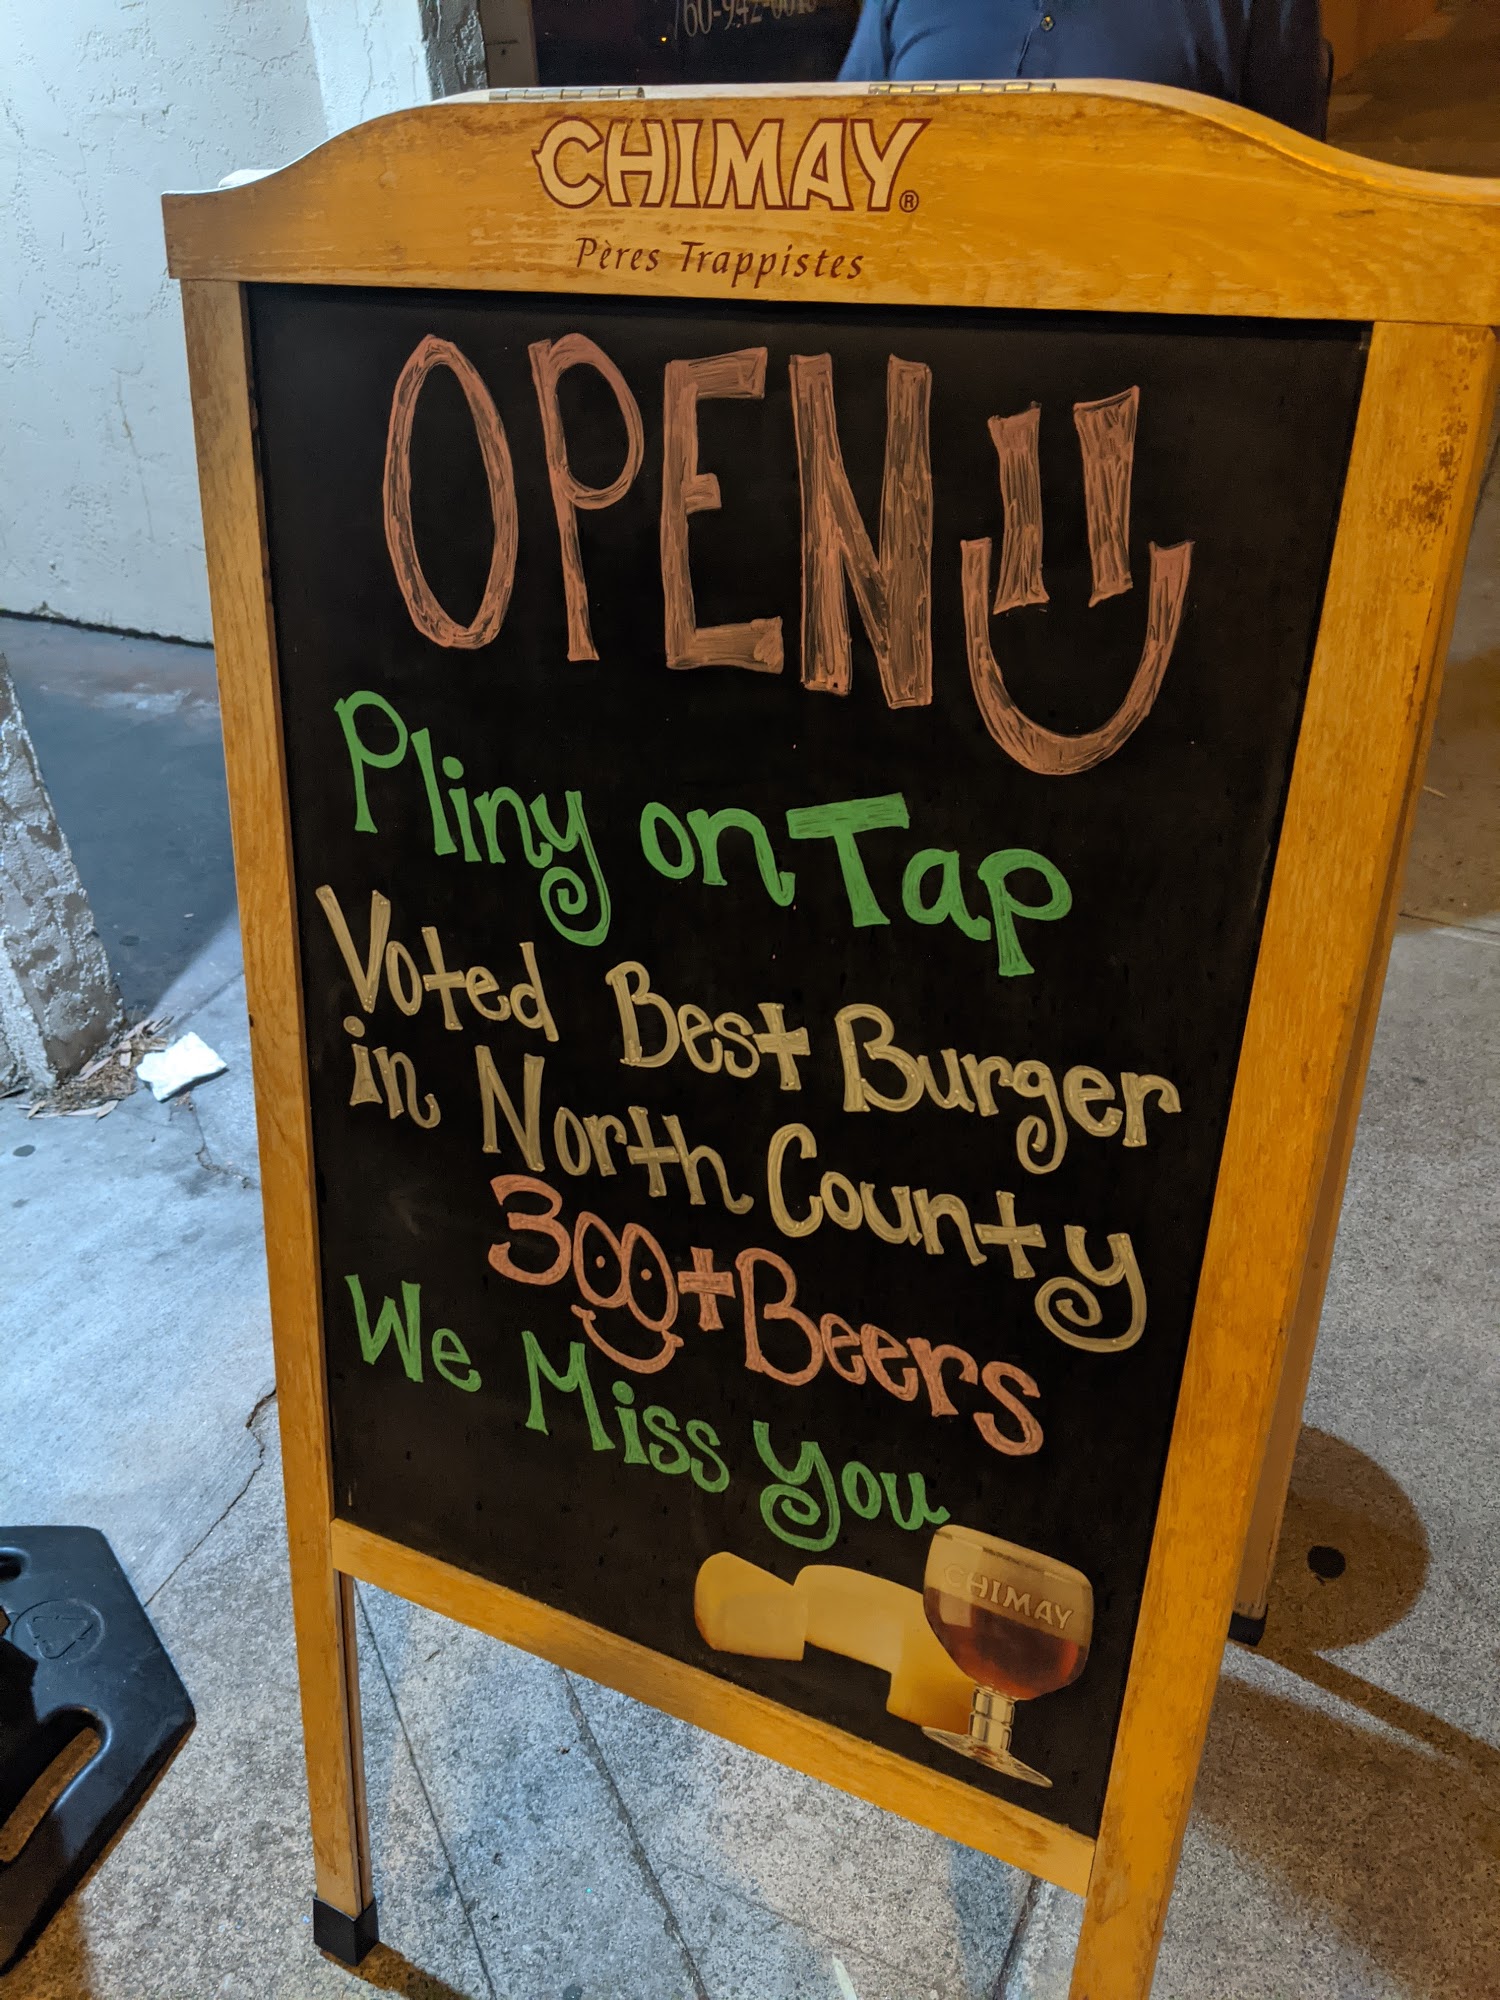 CHIMAY®
Pères Trappistes
OPEN
Pliny on Tap
Voted Best Burger
in North County
300+ Beers
We Miss You
CHIMAY